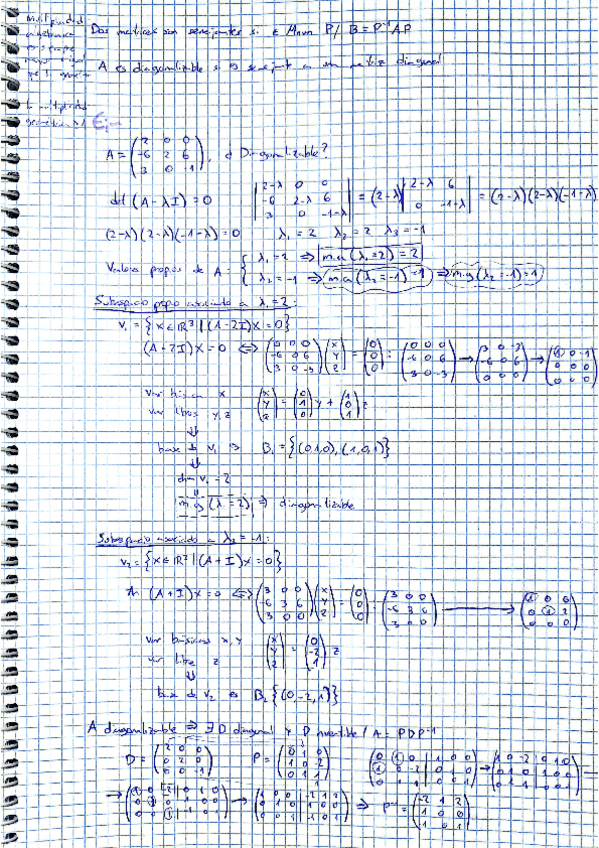 Dos matrices son semejantes si ∈ Mnxn P / B = P⁻¹AP
A es diagonalizable si es semejante a una matriz diagonal
A = (2 0 0; -6 2 6; 3 0 -1), ¿Diagonalizable?
det (A-λI) = 0 |2-λ 0 0; -6 2-λ 6; 3 0 -1-λ| = (2-λ) |2-λ 6; 0 -1-λ| = (2-λ)(2-λ)(-1-λ)
(2-λ)(2-λ)(-1-λ) = 0 λ₁ = 2 λ₂ = 2 λ₃ = -1
Valores propios de A: { λ₁ = 2 ⇒ m.a (λ₁ = 2) = 2
λ₂ = -1 ⇒ m.a (λ₂ = -1) = 1 ⇒ m.g (λ₂ = -1) = 1
Subespacio propio asociado a λ₁ = 2:
V₁ = {x ∈ ℝ³ | (A-2I)X = 0}
(A-2I)X = 0 ⇔ (0 0 0; -6 0 6; 3 0 -3) (x; y; z) = (0; 0; 0) : (0 0 0; -6 0 6; 3 0 -3) → (3 0 -3; -6 0 6; 0 0 0) → (1 0 -1; 0 0 0; 0 0 0)
var básica x
var libres y, z (x; y; z) = (0; 1; 0) y + (1; 0; 1) z
⇓
base de V₁ es B₁ = {(0,1,0), (1,0,1)}
⇓
dim V₁ = 2
m.g (λ = 2) ⇒ diagonalizable
Subespacio asociado a λ₂ = -1:
V₂ = {x ∈ ℝ³ | (A+I)x = 0}
(A+I)x = 0 ⇔ (3 0 0; -6 3 6; 3 0 0) (x; y; z) = (0; 0; 0) : (3 0 0; -6 3 6; 3 0 0) → (1 0 0; 0 1 2; 0 0 0)
var básicas x, y
var libre z (x; y; z) = (0; -2; 1) z
⇓
base de V₂ es B₂ {(0,-2,1)}
A diagonalizable ⇒ ∃ D diagonal y P invertible / A = PDP⁻¹
D = (2 0 0; 0 2 0; 0 0 -1) P = (0 1 0; 1 0 -2; 0 1 1) (0 1 0 | 1 0 0; 1 0 -2 | 0 1 0; 0 1 1 | 0 0 1) → (1 0 -2 | 0 1 0; 0 1 0 | 1 0 0; 0 1 1 | 0 0 1)
→ (1 0 -2 | 0 1 0; 0 1 0 | 1 0 0; 0 0 1 | -1 0 1) → (1 0 0 | -2 1 2; 0 1 0 | 1 0 0; 0 0 1 | -1 0 1) ⇒ P⁻¹ = (-2 1 2; 1 0 0; -1 0 1)